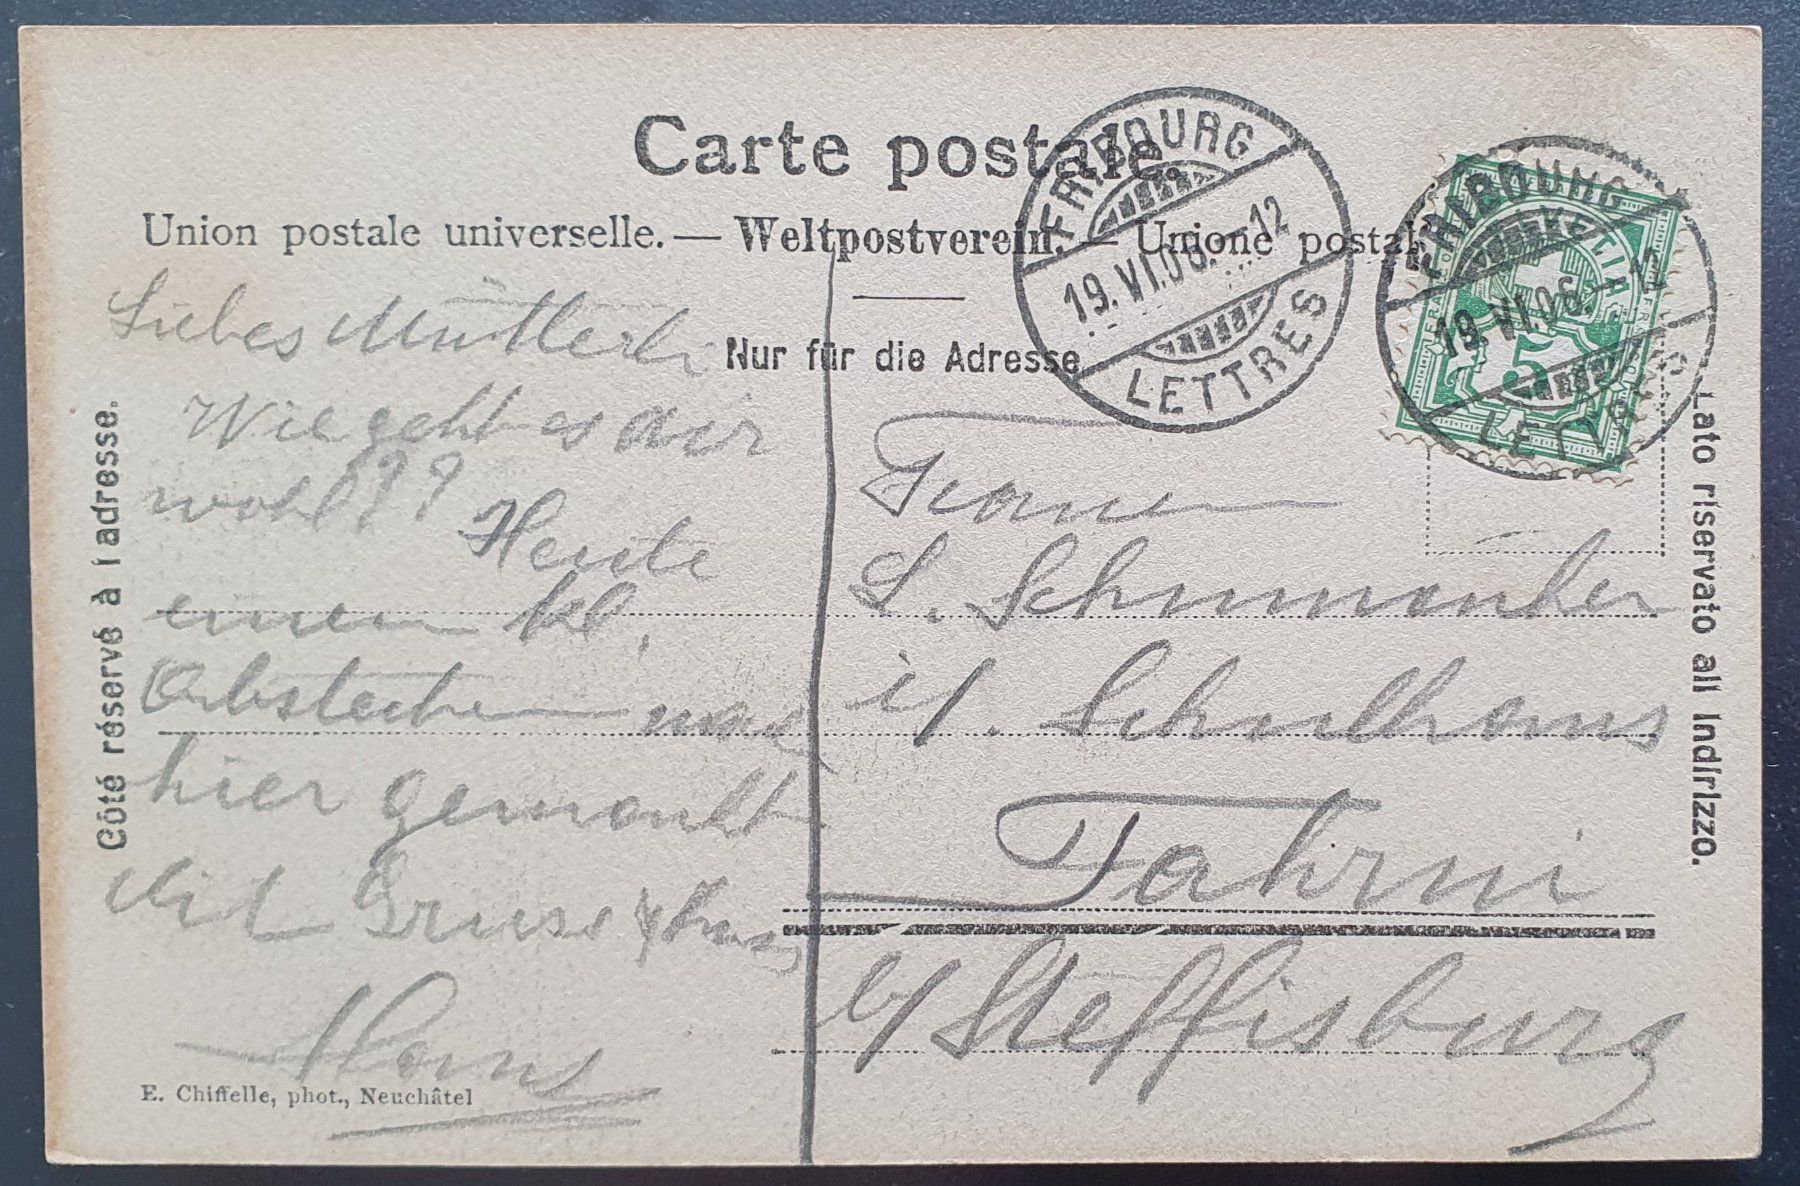 Carte postale.
Union postale universelle. — Weltpostverein. — Unione postale
Nur für die Adresse
Côté réservé à l'adresse.
Lato riservato all' indirizzo.
FRIBOURG
19.VI.06.–12
LETTRES
FRIBOURG
19.VI.06.–12
LETTRES
HELVETIA
5
Liebes Mütterli
Wie geht es Dir
wohl?? Heute
einen kl.
Abstecher nach
hier gemacht
Mit Gruss & Kuss
Hans
Frau
L.
i/. Schulhaus
Fahrni
b/ Steffisburg
E. Chiffelle, phot., Neuchâtel